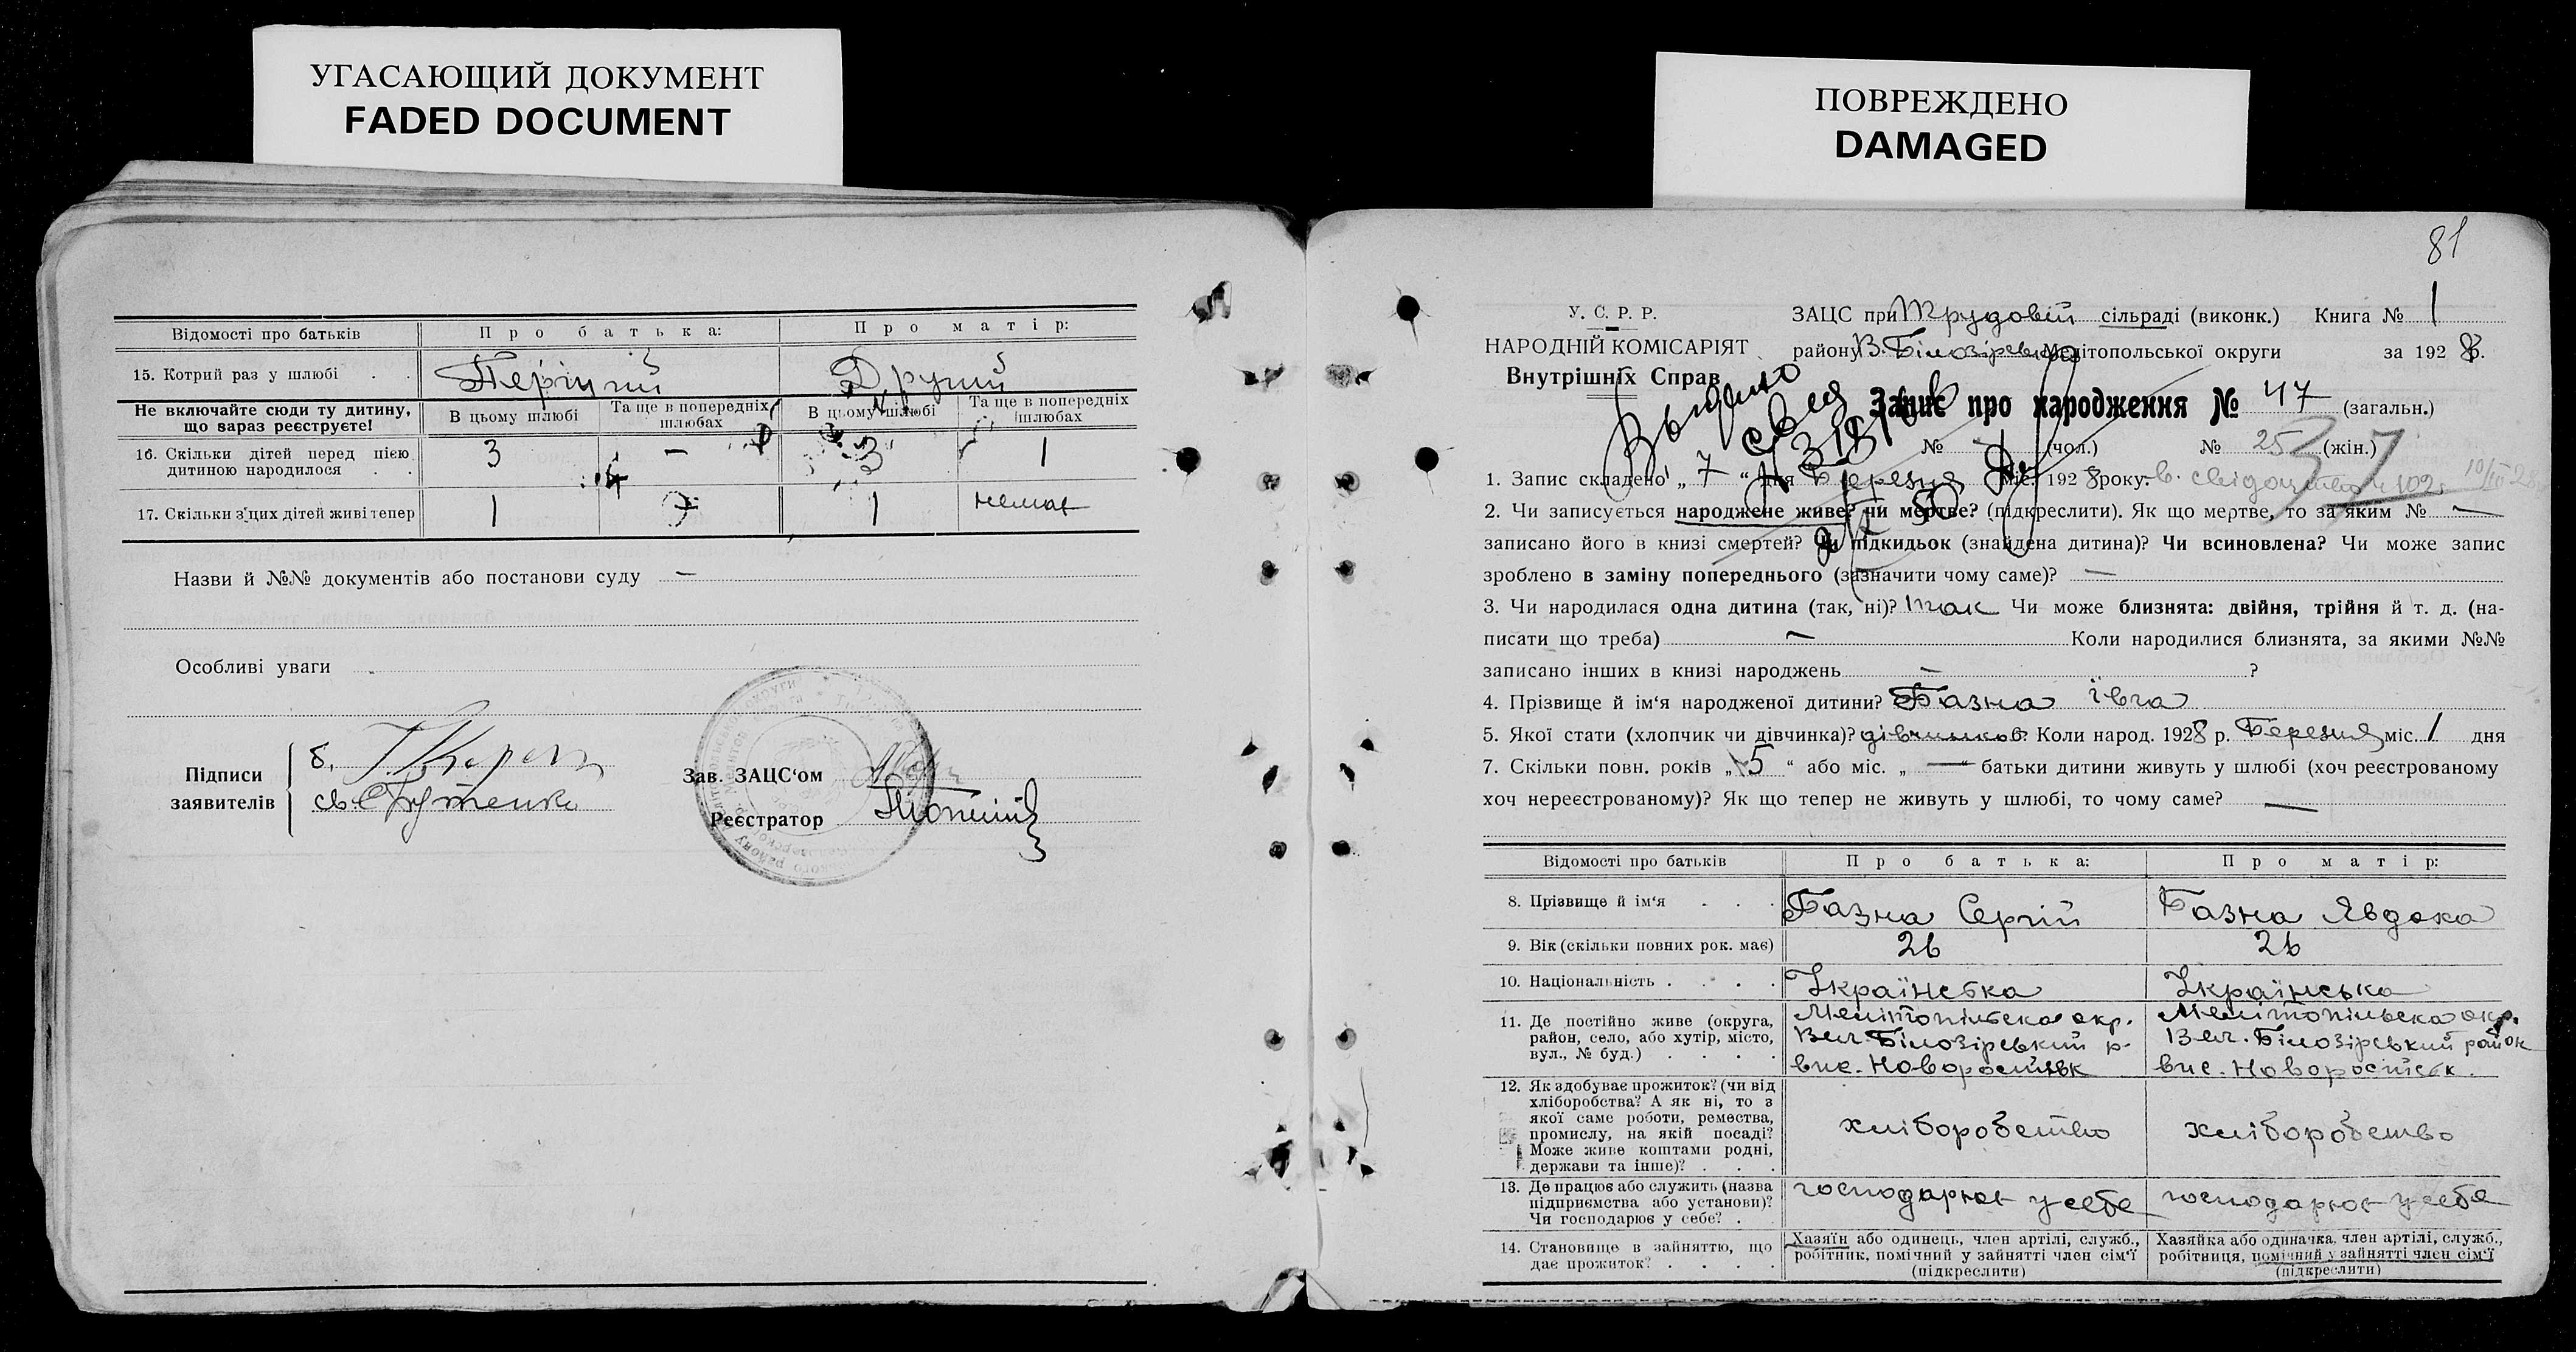 УГАСАЮЩИЙ ДОКУМЕНТ
FADED DOCUMENT
Відомості про батьків Про батька: Про матір:
15. Котрий раз у шлюбі . . Перший Другий
Не включайте сюди ту дитину, що вараз реєструєте! В цьому шлюбі Та ще в попередніх шлюбах В цьому шлюбі Та ще в попередніх шлюбах
16. Скільки дітей перед цією 3 — 3 1
дитиною народилося . .
17. Скільки з цих дітей живі тепер 1 1 немає
Назви й №№ документів або постанови суду —
Особливі уваги
Підписи
заявителів
Зав. ЗАЦС‘ом
Реєстратор
ПОВРЕЖДЕНО
DAMAGED
81
У. С. Р. Р.
НАРОДНІЙ КОМІСАРІЯТ
Внутрішніх Справ
ЗАЦС при Трудовій сільраді (виконк.) Книга № 1
району В. Білозірського Мелітопольської округи за 1928 р.
Запис про народження № 47 (загальн.)
№ — (чол.) № 25 (жін.)
37
Выдано
свид
50
1. Запис складено „ 7 “ дня Березня міс. 1928 року.
2. Чи записується народжене живе? чи мертве? (підкреслити). Як що мертве, то за яким № —
записано його в книзі смертей? Чи підкидьок (знайдена дитина)? Чи всиновлена? Чи може запис
зроблено в заміну попереднього (зазначити чому саме)? —
3. Чи народилася одна дитина (так, ні)? так Чи може близнята: двійня, трійня й т. д. (на-
писати що треба) — Коли народилися близнята, за якими №№
записано інших в книзі народжень — ?
4. Прізвище й ім‘я народженої дитини? Базна Івга
5. Якої стати (хлопчик чи дівчинка)? дівчинков. Коли народ. 1928 р. Березня міс. 1 дня
7. Скільки повн. років „ 5 “ або міс. „ — “ батьки дитини живуть у шлюбі (хоч реєстрованому
хоч нереєстрованому)? Як що тепер не живуть у шлюбі, то чому саме? —
Відомості про батьків Про батька: Про матір:
8. Прізвище й ім‘я . . . Базна Сергій Базна Явдоха
9. Вік (скільки повних рок. має) 26 26
10. Національність . . . . Українська Українська
11. Де постійно живе (округа, Мелітопільська окр. Мелітопільська окр.
район, село, або хутір, місто, Вел. Білозірський р. Вел. Білозірський район
вул., № буд.) . . . . вис. Новоросійськ вис. Новоросійськ
12. Як здобуває прожиток? (чи від
хліборобства? А як ні, то з
якої саме роботи, ремества,
промислу, на якій посаді? хліборобство хліборобство
Може живе коштами родні,
держави та інше)? . . .
13. Де працює або служить (назва господарює у себе господарює у себе
підприємства або установи)?
Чи господарює у себе? .
14. Становище в зайняттю, що Хазяїн або одинець, член артілі, служб., Хазяйка або одиначка, член артілі, служб.,
дає прожиток? . . . . робітник, помічний у зайнятті член сім‘ї робітниця, помічний у зайнятті член сім‘ї
(підкреслити) (підкреслити)